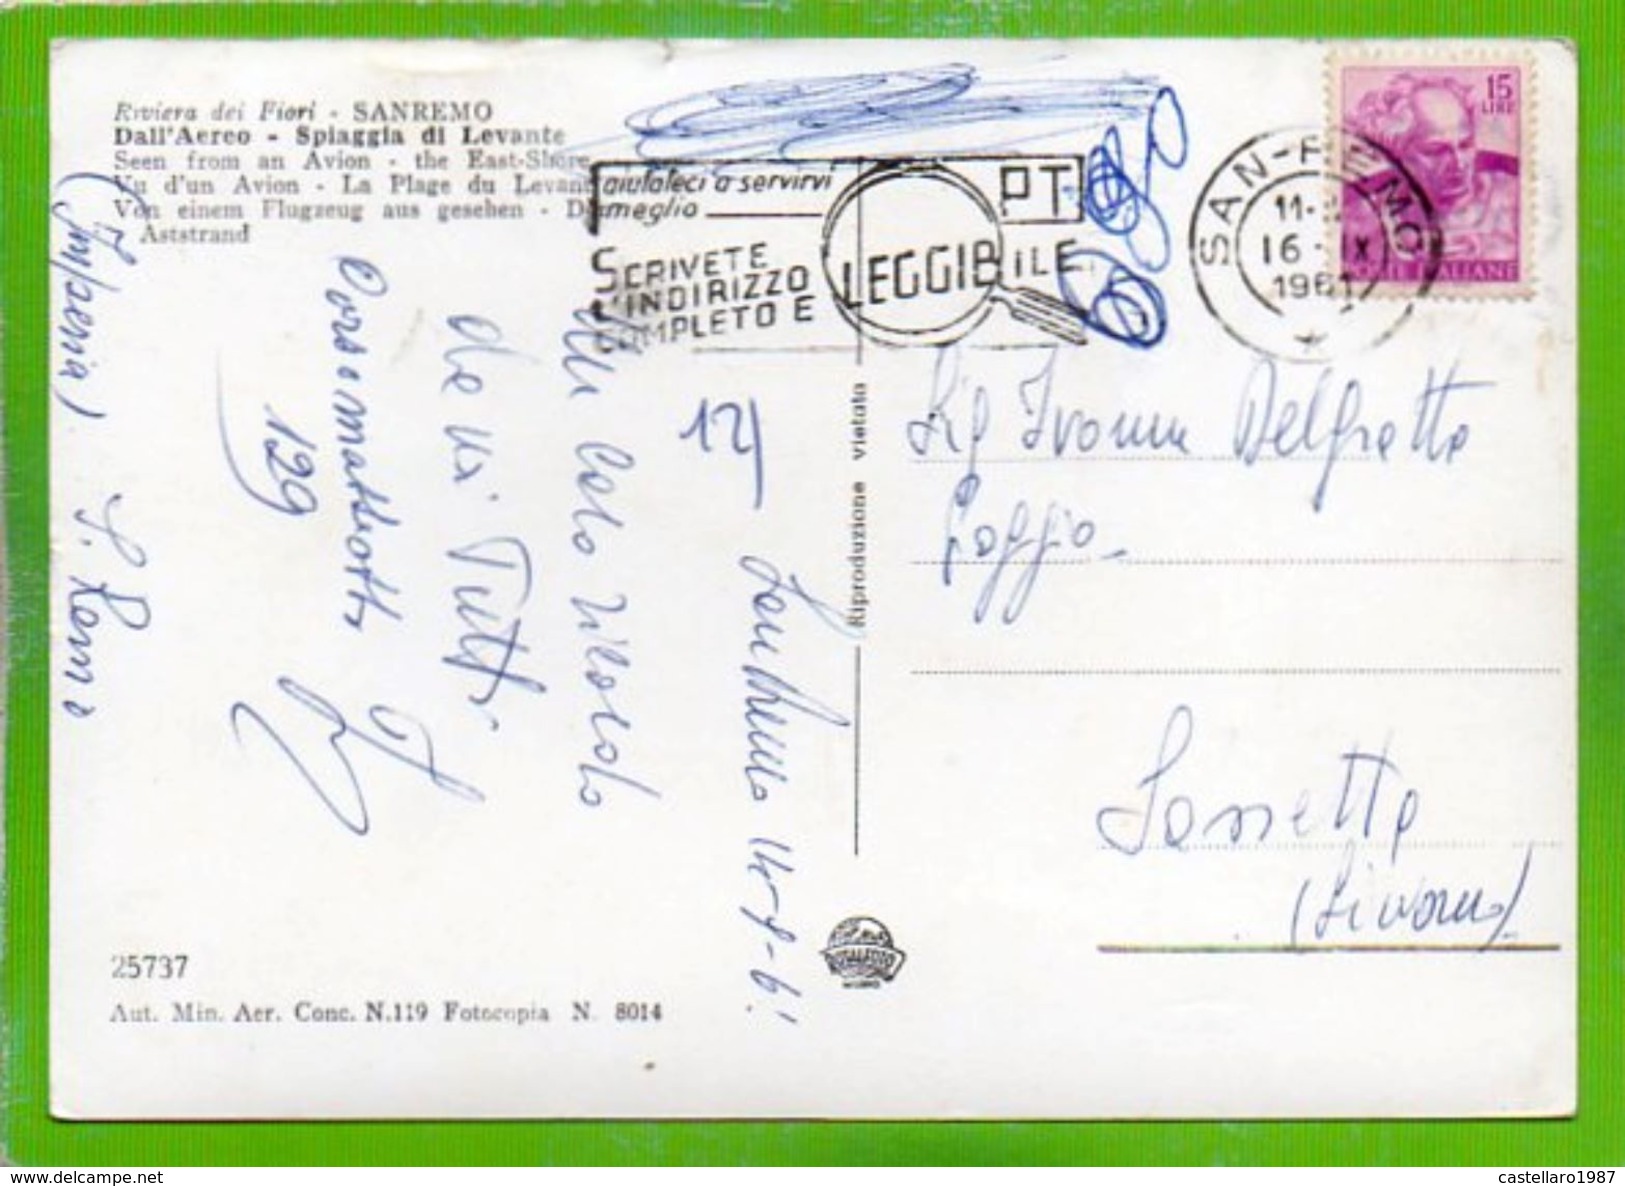 Riviera dei Fiori - SANREMO
Dall'Aereo - Spiaggia di Levante
Seen from an Avion - the East-Shore
Vu d'un Avion - La Plage du Levant
Von einem Flugzeug aus gesehen - D
Aststrand
aiutateci a servirvi
meglio
PT
SCRIVETE
L'INDIRIZZO
COMPLETO E LEGGIBILE
SAN-REMO
11-
16-IX
1961
15
LIRE
POSTE ITALIANE
Sig Ivonne Delgratta
Poggio
Sassetta
(Livorno)
Riproduzione vietata
Tutti
Corso matteotti
129
(Imperia) S. Remo
25737
Aut. Min. Aer. Conc. N.119 Fotocopia N. 8014
castellaro1987